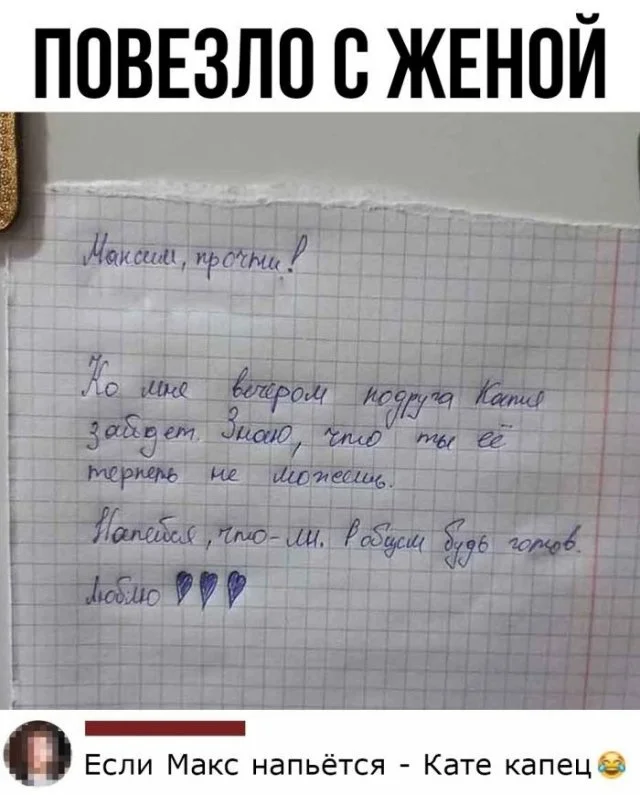 ПОВЕЗЛО С ЖЕНОЙ
Максим, прочти!
Ко мне вечером подруга Катя
зайдет. Знаю, что ты её
терпеть не можешь.
Напейся, что-ли. В общем будь готов.
Люблю ♥♥♥
Если Макс напьётся - Кате капец😂